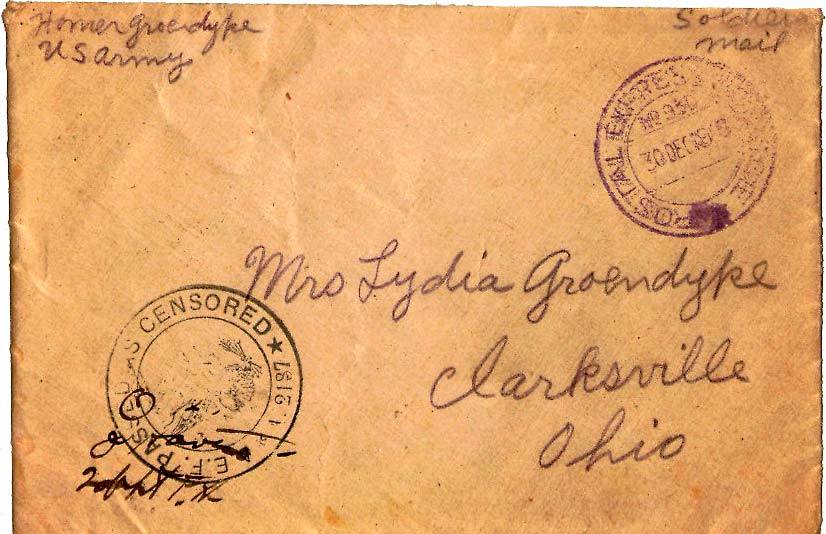 Homer Groendyke
US army
Soldiers
mail
POSTAL EXPRESS SERVICE
30 DEC
Mrs Lydia Groendyke
Clarksville
Ohio
A.E.F. PASSED AS CENSORED ★